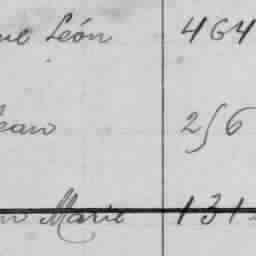 ue León 464
Jean 256
n Marie 131